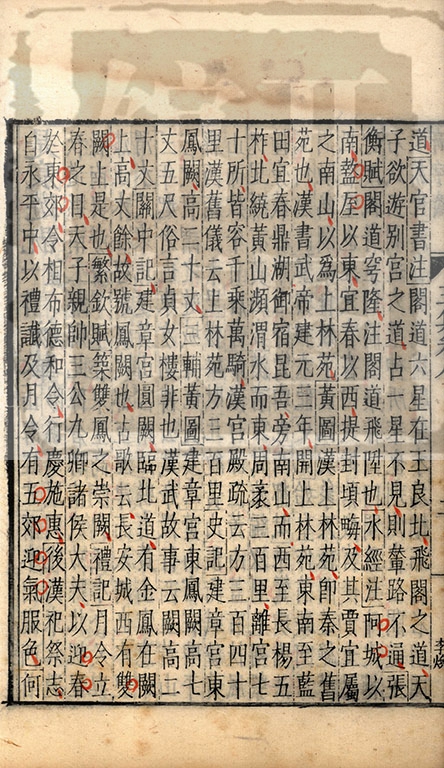 道天官書注閣道六星在王良北飛閣之道天
子欲遊別宮之道占一星不見則輦路不通張
衡賦閣道穹隆注閣道飛陛也水經注阿城以
南盩厔以東宜春以西提封頃畮及其賈宜屬
之南山以爲上林苑黃圖漢上林苑即秦之舊
苑也漢書武帝建元三年開上林苑東南至藍
田宜春鼎湖御宿昆吾旁南山而西至長楊五
柞北繞黃山瀕渭水而東周袤三百里離宮七
十所皆容千乘萬騎漢宮殿疏云方三百四十
里漢舊儀云上林苑方三百里史記建章宮東
鳳闕高二十丈三輔黃圖建章宮東鳳闕高七
丈五尺俗言貞女樓非也漢武故事云闕高二
十丈關中記建章宮圓闕臨北道有金鳳在闕
上高丈餘故號鳳闕也古歌云長安城西有雙
闕上是也繁欽賦筑雙鳳之崇闕禮記月令立
春之日天子親帥三公九卿諸侯大夫以迎春
於東郊令相布德和令行慶施惠後漢祀祭志
自永平中以禮讖及月令有五郊迎氣服色何